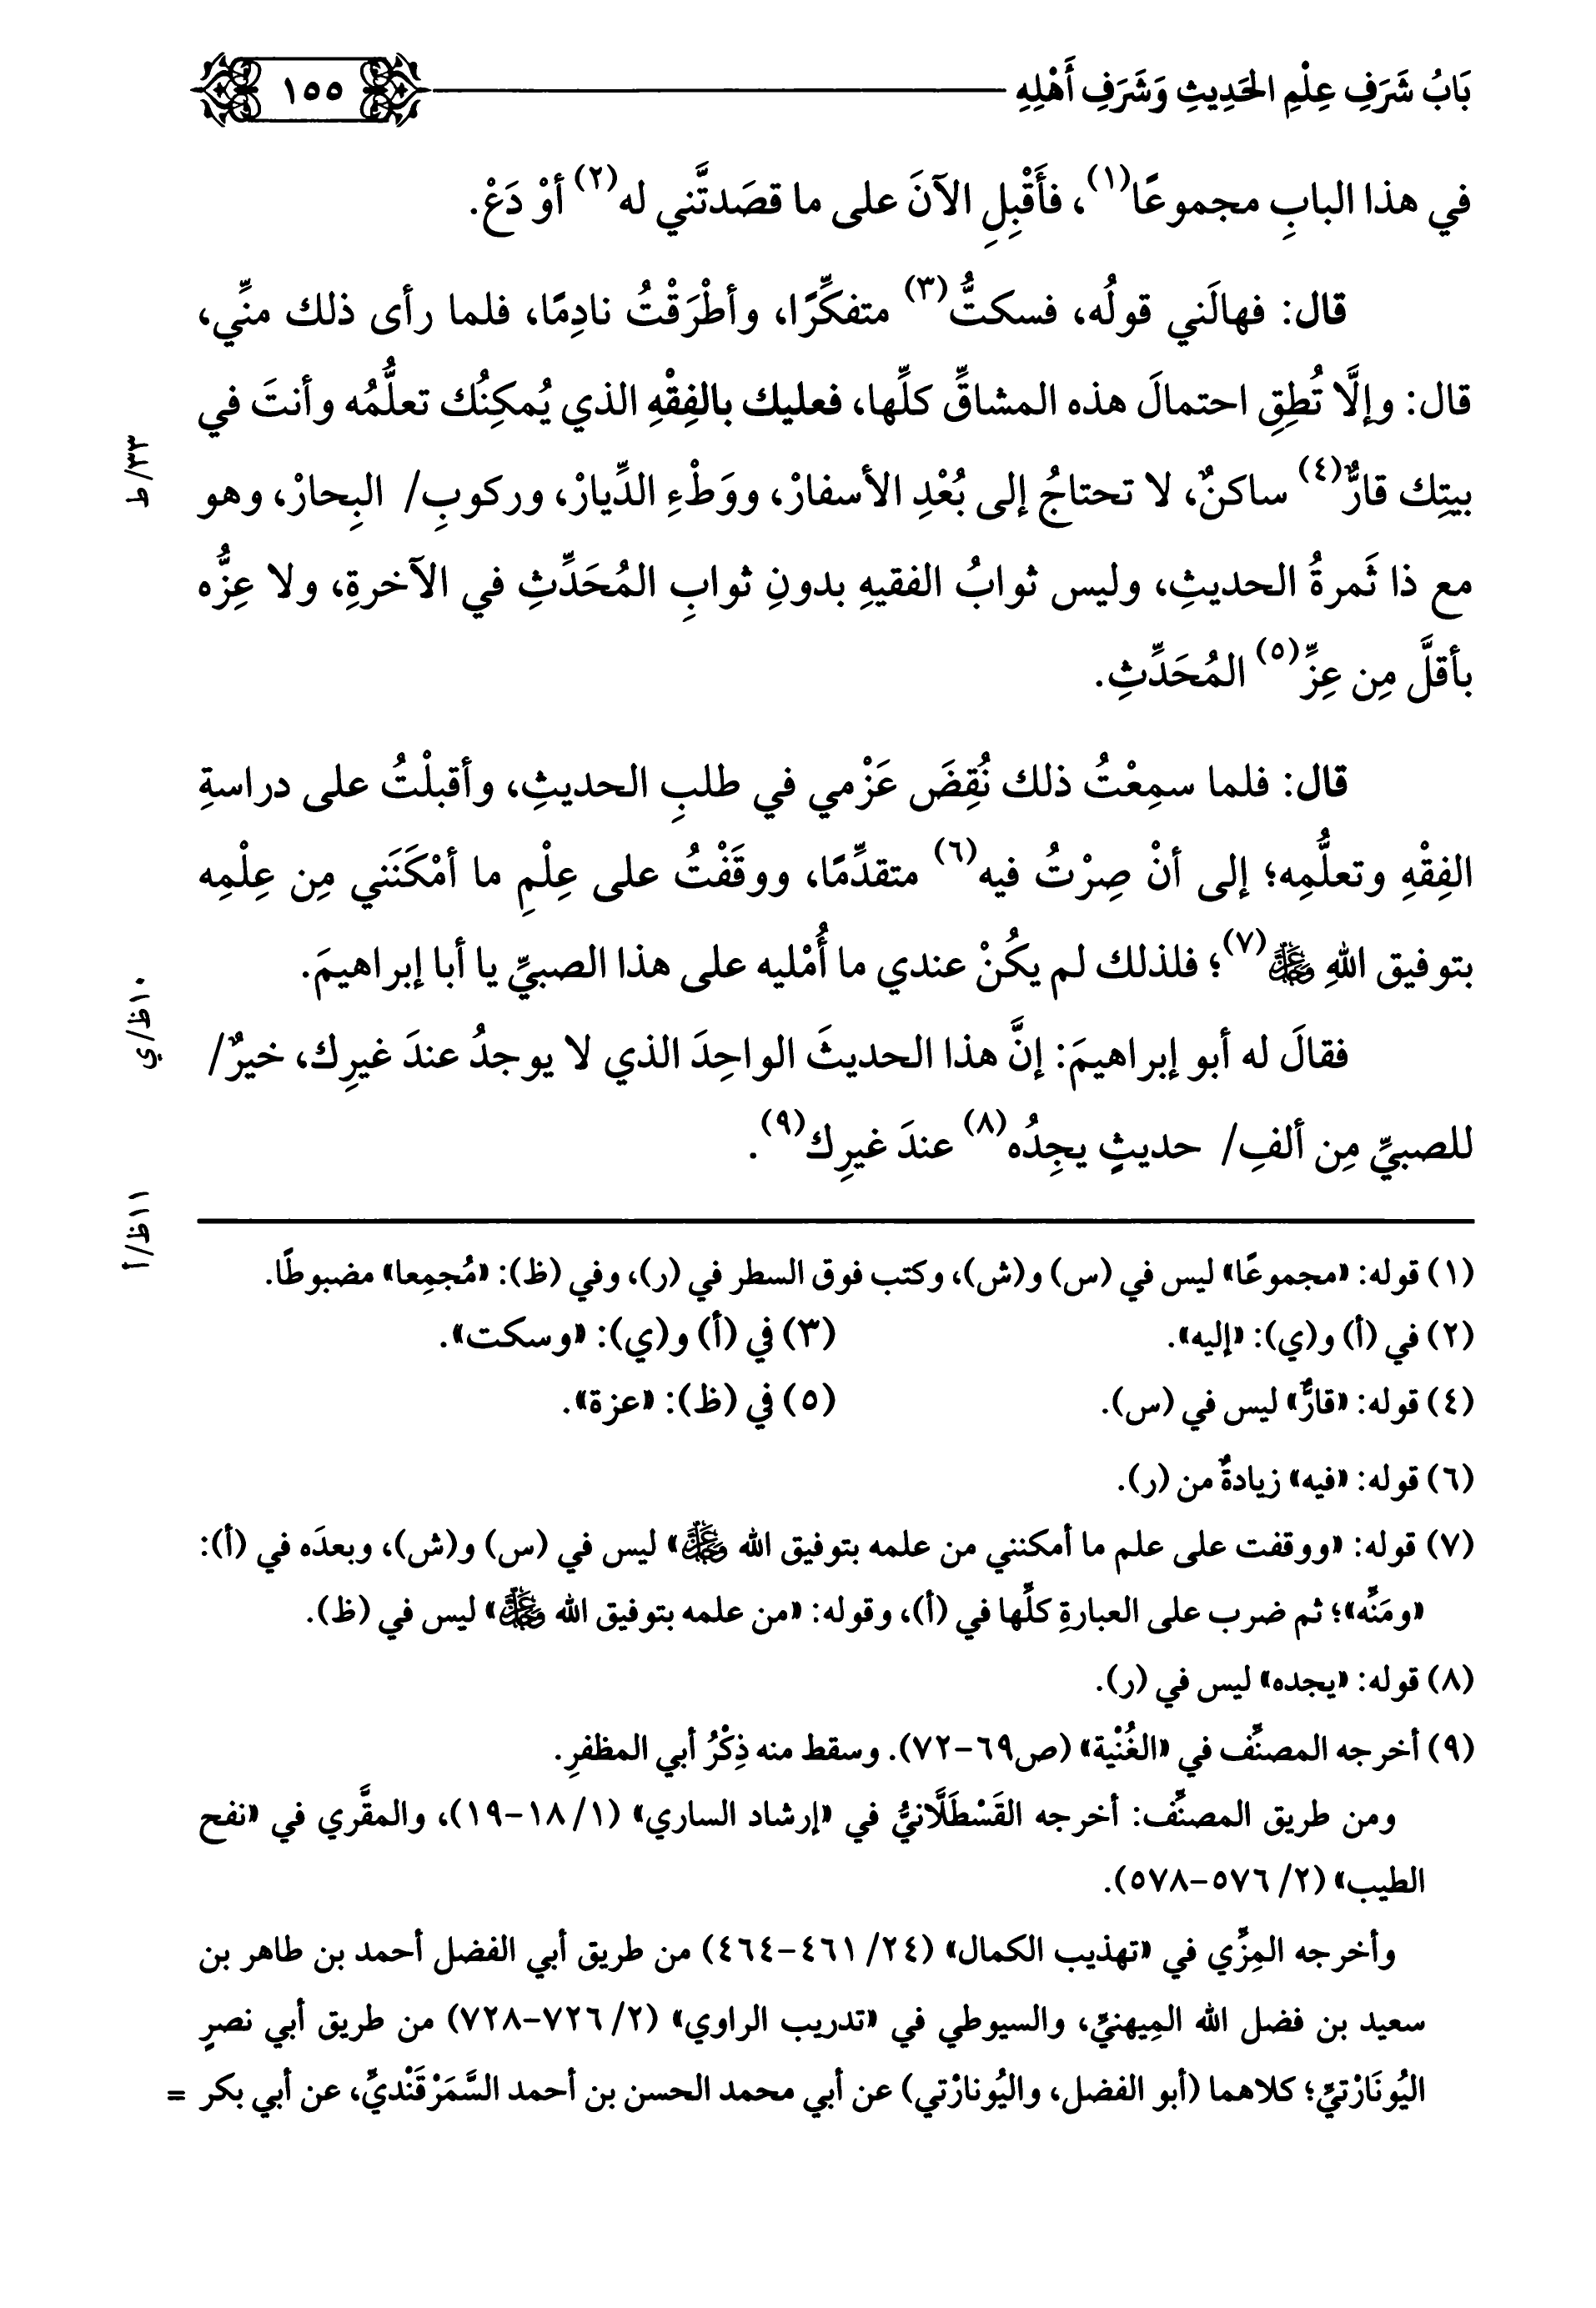 بَابُ شَرَفِ عِلْمِ الحَدِيثِ وَشَرَفِ أَهْلِهِ
١٥٥
في هذا البابِ مجموعًا(١)، فأَقْبِلِ الآنَ على ما قصَدتَّني له(٢) أوْ دَعْ.
قال: فهالَني قولُه، فسكتُّ(٣) متفكِّرًا، وأطْرَقْتُ نادِمًا، فلما رأى ذلك منِّي،
قال: وإلَّا تُطِقِ احتمالَ هذه المشاقِّ كلِّها، فعليك بالفِقْهِ الذي يُمكِنُك تعلُّمُه وأنتَ في
بيتِك قارٌّ(٤) ساكنٌ، لا تحتاجُ إلى بُعْدِ الأسفارْ، ووَطْءِ الدِّيارْ، وركوبِ/ البِحارْ، وهو
٣٣/ط
مع ذا ثَمرةُ الحديثِ، وليس ثوابُ الفقيهِ بدونِ ثوابِ المُحَدِّثِ في الآخرةِ، ولا عِزُّه
بأقلَّ مِن عِزِّ(٥) المُحَدِّثِ.
قال: فلما سمِعْتُ ذلك نُقِضَ عَزْمي في طلبِ الحديثِ، وأقبلْتُ على دراسةِ
الفِقْهِ وتعلُّمِه؛ إلى أنْ صِرْتُ فيه(٦) متقدِّمًا، ووقَفْتُ على عِلْمِ ما أمْكَنَني مِن عِلْمِه
بتوفيق اللهِ ﷿(٧)؛ فلذلك لم يكُنْ عندي ما أُمْليه على هذا الصبيِّ يا أبا إبراهيمَ.
فقالَ له أبو إبراهيمَ: إنَّ هذا الحديثَ الواحِدَ الذي لا يوجدُ عندَ غيرِك، خيرٌ/
١٠ظ/ي
للصبيِّ مِن ألفِ/ حديثٍ يجِدُه(٨) عندَ غيرِك(٩).
١١ظ/أ
(١) قوله: «مجموعًا» ليس في (س) و(ش)، وكتب فوق السطر في (ر)، وفي (ظ): «مُجمِعا» مضبوطًا.
(٢) في (أ) و(ي): «إليه».
(٣) في (أ) و(ي): «وسكت».
(٤) قوله: «قارٌّ» ليس في (س).
(٥) في (ظ): «عزة».
(٦) قوله: «فيه» زيادةٌ من (ر).
(٧) قوله: «ووقفت على علم ما أمكنني من علمه بتوفيق الله ﷿» ليس في (س) و(ش)، وبعدَه في (أ):
«ومَنِّه»؛ ثم ضرب على العبارةِ كلِّها في (أ)، وقوله: «من علمه بتوفيق الله ﷿» ليس في (ظ).
(٨) قوله: «يجده» ليس في (ر).
(٩) أخرجه المصنِّف في «الغُنْية» (ص٦٩-٧٢). وسقط منه ذِكْرُ أبي المظفرِ.
ومن طريق المصنِّف: أخرجه القَسْطَلَّانيُّ في «إرشاد الساري» (١/ ١٨-١٩)، والمقَّري في «نفح
الطيب» (٢/ ٥٧٦-٥٧٨).
وأخرجه المِزِّي في «تهذيب الكمال» (٢٤/ ٤٦١-٤٦٤) من طريق أبي الفضل أحمد بن طاهر بن
سعيد بن فضل الله المِيهنيِّ، والسيوطي في «تدريب الراوي» (٢/ ٧٢٦-٧٢٨) من طريق أبي نصرٍ
اليُونَارْتيِّ؛ كلاهما (أبو الفضل، واليُونارْتي) عن أبي محمد الحسن بن أحمد السَّمَرْقَنْديِّ، عن أبي بكر =